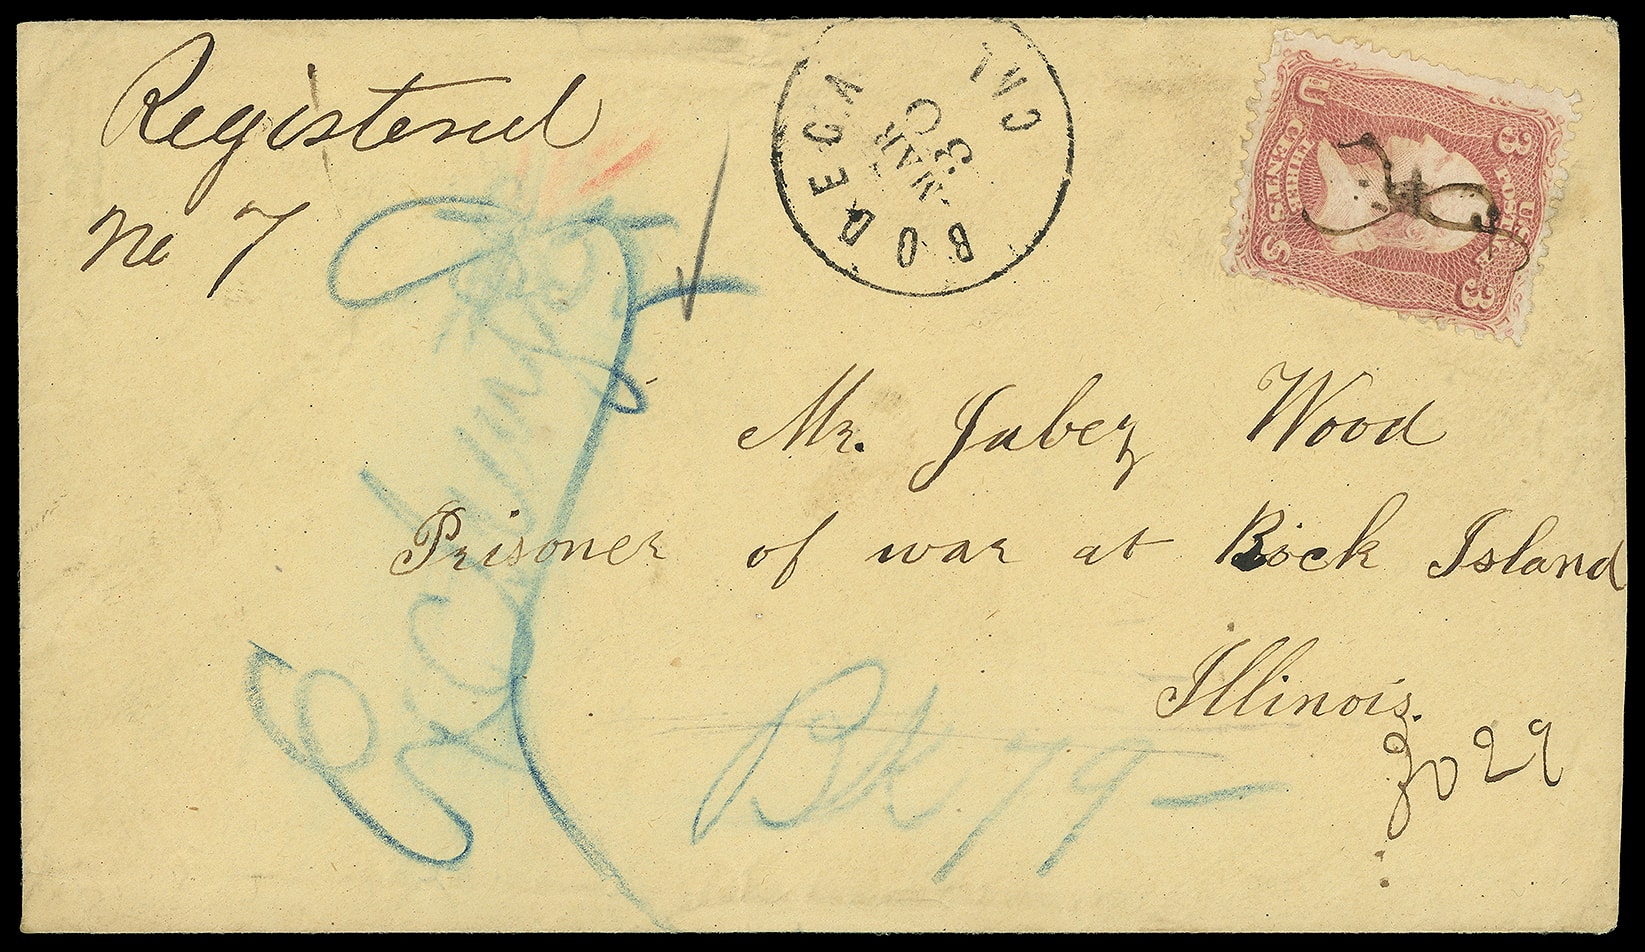 Registered
No 7
BODEGA CAL
MAR
30
U S
3 3
THREE CENTS
U.S. POST
Mr. Jabez Wood
Prisoner of war at Rock Island
Illinois.
Bk 79 —
No 29